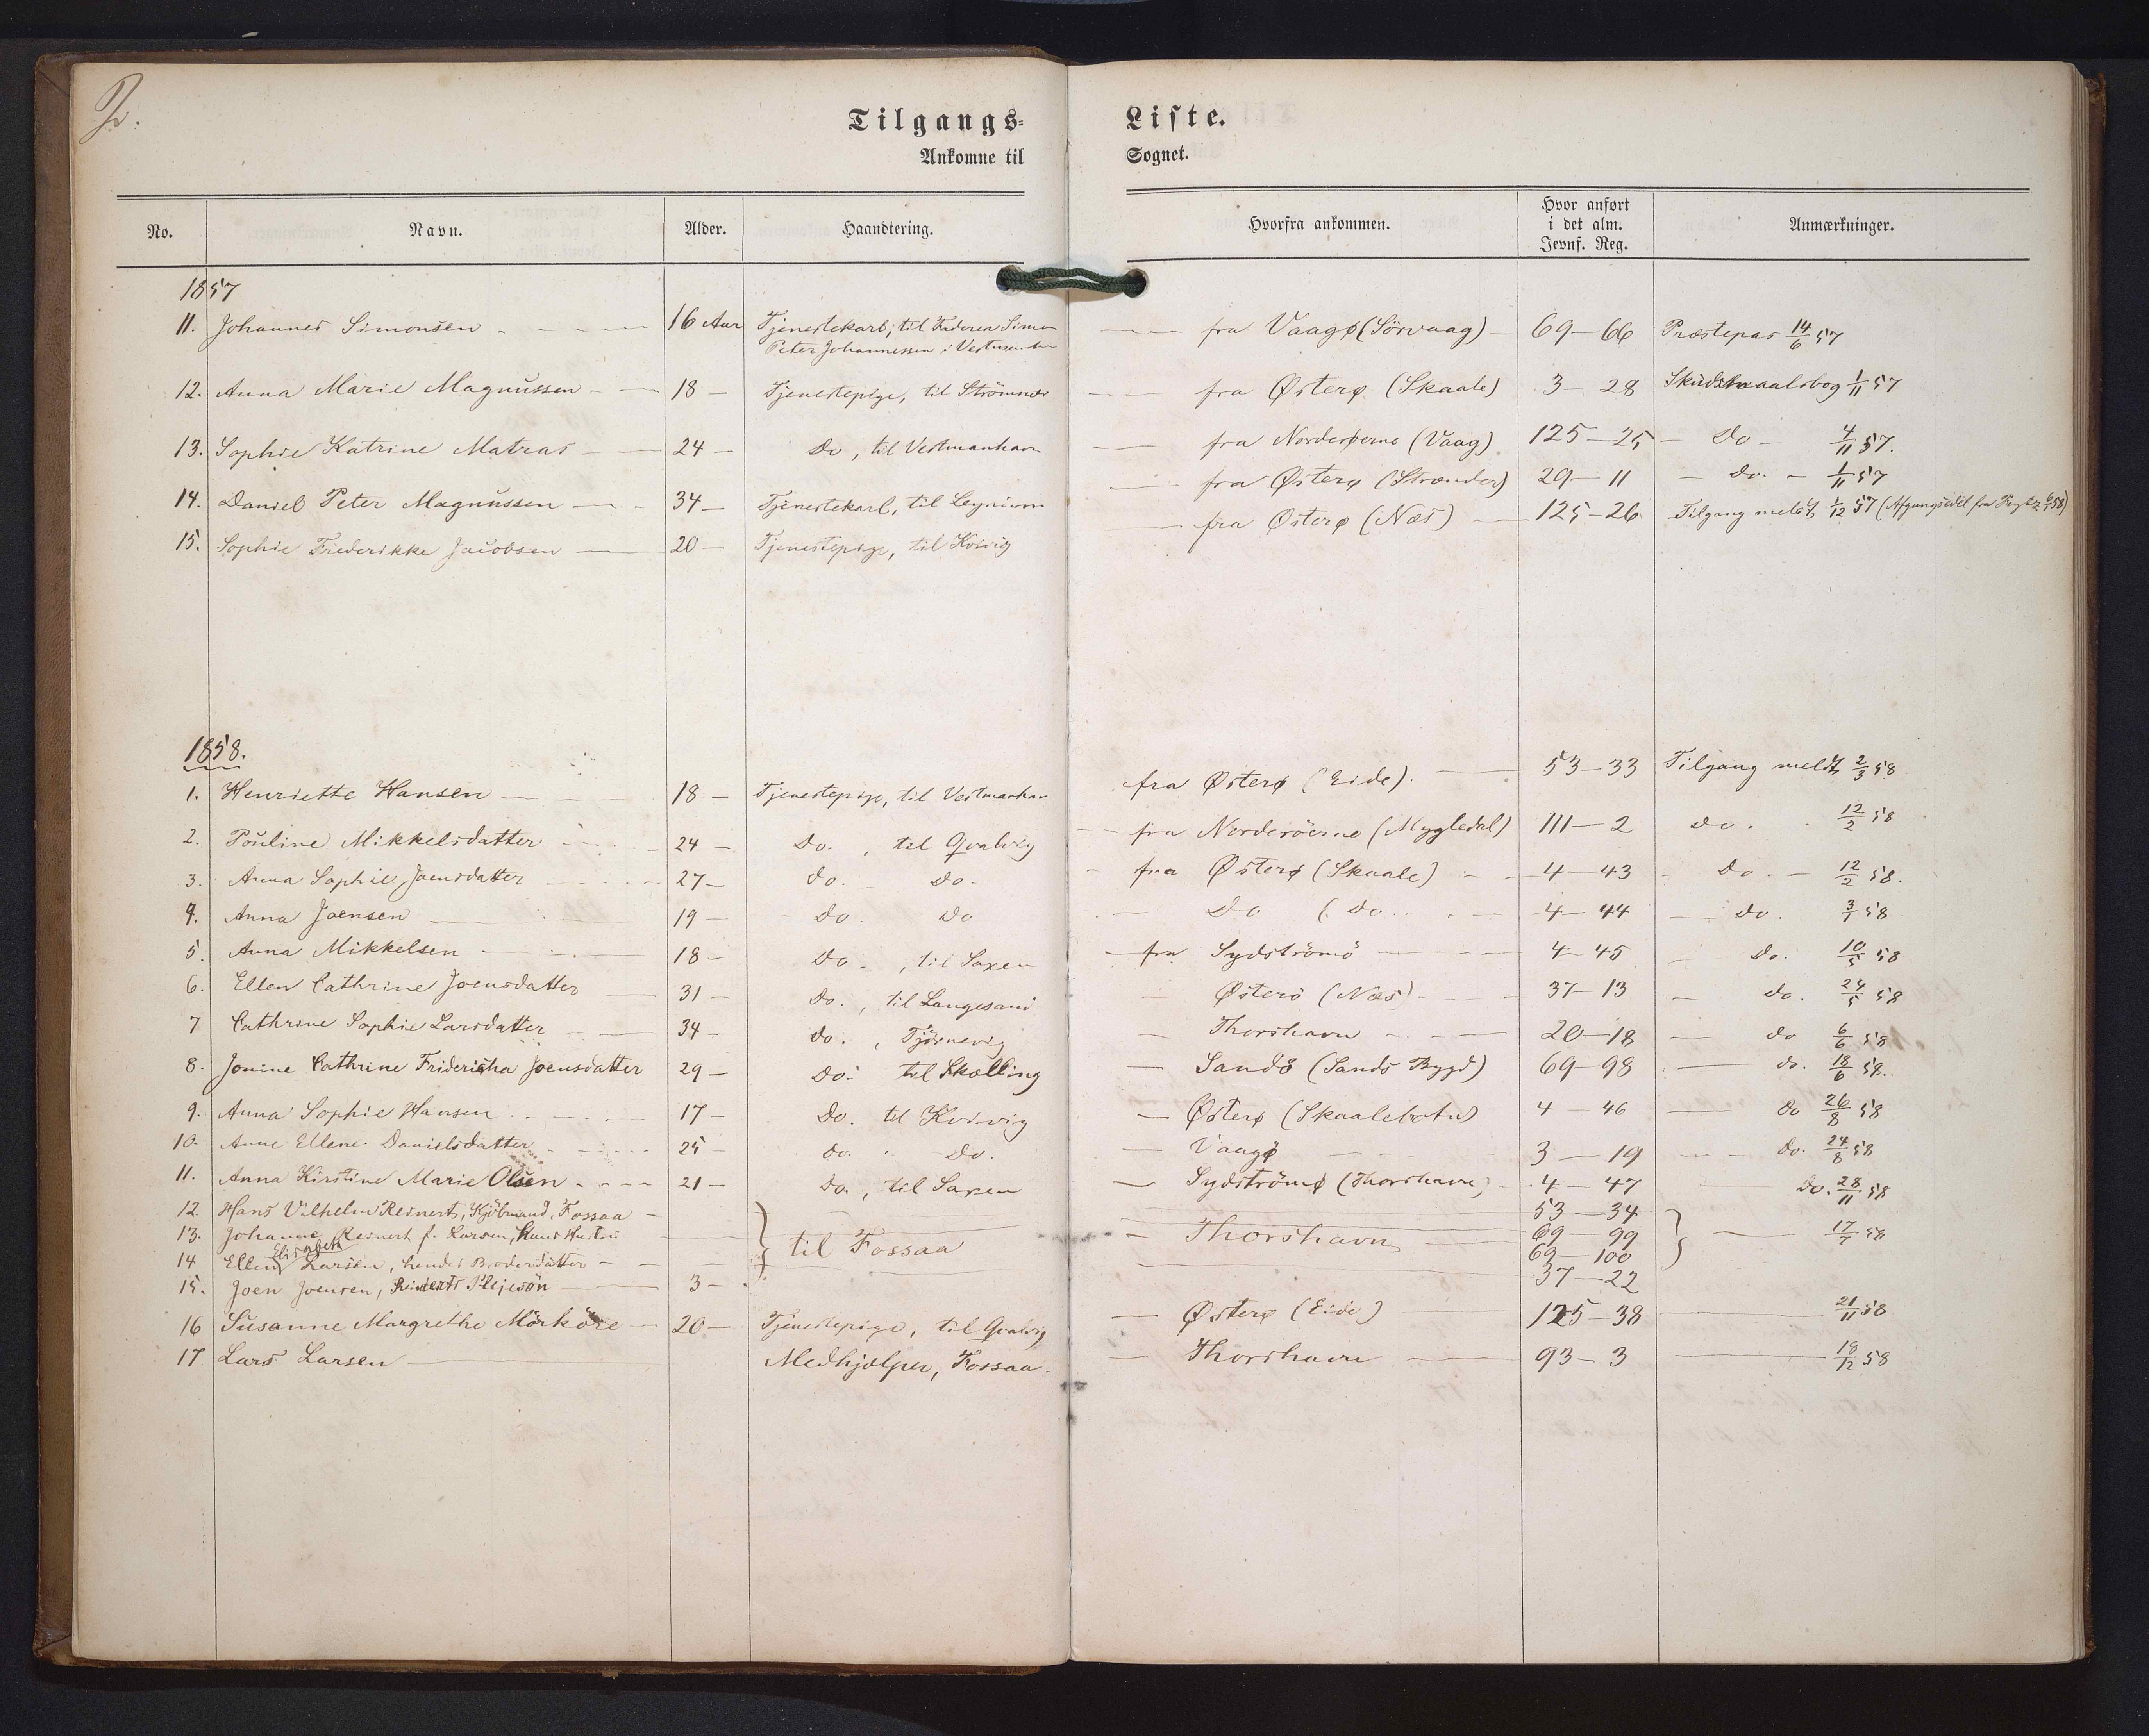 2.
Tilgangs= Liste.
Ankomne til Sognet.
No. Navn. Alder. Haandtering. Hvorfra ankommen. Hvor anført i det alm. Jevnf. Reg. Anmærkninger.
1857
11. Johannes Simonsen - - - 16 Aar Tjenestekarl, til Faderen Simon Peter Johannessen i Vestmanhavn — fra Vaagø (Sörvaag) — 69 — 66 Præstepas 14/6 57
12. Anna Marie Magnussen - 18 — Tjenestepige, til Strömnæs — fra Østerø (Skaale) 3 — 28 Skudsmaalsbog 1/11 57
13. Sophie Katrine Matras - 24 — Do, til Vestmanhavn — fra Norderøerne (Vaag) 125 — 25 — Do — 4/11 57.
14. Daniel Peter Magnussen — 34 — Tjenestekarl, til Leynum — fra Østerø (Strænder) 29 — 11 — Do. — 1/11 57
15. Sophie Friederikke Jacobsen — 20 — Tjenestepige, til Kvivig — fra Østerø (Næs) — 125 — 26 Tilgang meldt 1/12 57 (Afgangsedel fra
1858.
1. Henriette Hansen — 18 — Tjenestepige, til Vestmanhavn fra Østerø (Eide). — 53 — 33 Tilgang meldt 2/3 58
2. Pouline Mikkelsdatter — 24 — Do. , til Qvalvig — fra Norderöerne (Mygledal) 111 — 2 do. 12/2 58
3. Anna Sophie Joensdatter — 27 — do. do. — fra Østerø (Skaale) — 4 — 43 — Do — 12/2 58.
4. Anna Joensen — 19 — Do. Do — Do (Do.. — 4 — 44 — do. 3/1 58
5. Anna Mikkelsen — 18 — Do. , til Saxen — fra Sydströmö — 4 — 45 — Do. 10/5 58
6. Ellen Cathrine Joensdatter — 31 — Do. , til Langesand — Østerö (Næs) — 37 — 13 — do. 24/5 58
7 Cathrine Sophie Larsdatter — 34 — do. , Tjörnevig — Thorshavn — 20 — 18 — do 6/6 58
8. Jonine Cathrine Fridericha Joensdatter 29 — Do. til Skælling — Sandö (Sands Bygd) 69 — 98 — do. 18/6 58.
9. Anna Sophie Hansen — 17 — Do. til Kvivig — Østerø (Skaalebotn) 4 46 — Do 26/8 58
10. Anne Ellene Danielsdatter — 25 — do. " Do. — Vaagø — 3 — 19 — do. 24/8 58
11. Anna Kirstine Marie Olsen — 21 — Do., til Saxen — Sydströmø (Thorshavn) 4 — 47 — Do. 28/11 58
12. Hans Vilhelm Reinert, Kjöbmand, Fossaa — 53 — 34
13. Johanne Reinert f. Larsen, Hans Hustru — til Fossaa — Thorshavn — 69 — 99 — 17/7 58
14 Ellen Elisabeth Larsen, hendes Broderdatter — 69 — 100
15. Joen Joensen, Reinerts Plejesön — 3 — 37 — 22
16 Susanne Margrethe Mörköre — 20 — Tjenestepige, til Qvalvig — Østerø (Eide) — 125 — 38 — 21/11 58
17 Lars Larsen — Medhjælper, Fossaa. — Thorshavn — 93 — 3 — 18/12 58